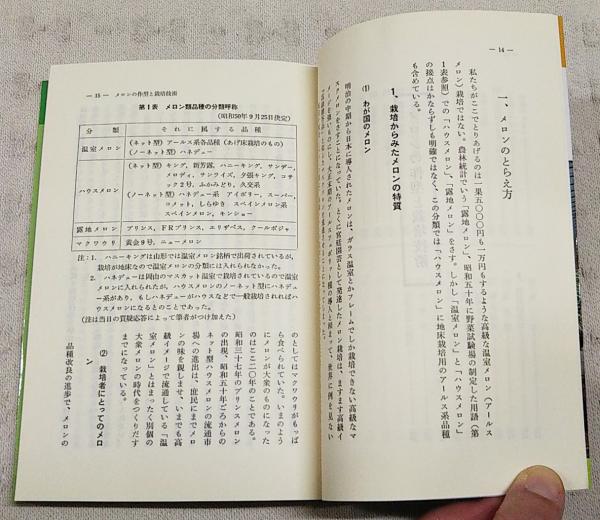 — 14 —
一、メロンのとらえ方
私たちがここでとりあげるのは一果五〇〇〇円も一万円もするような高級な温室メロン（アールス
メロン）栽培ではない。農林統計でいう「露地メロン」、昭和五十年に野菜試験場の制定した用語（第
1表参照）での「ハウスメロン」、「露地メロン」をさす。しかし「温室メロン」と「ハウスメロン」
の接点はかならずしも明確ではなく、この分類では「ハウスメロン」に地床栽培用のアールス系品種
も含めている。
1、栽培からみたメロンの特質
(1) わが国のメロン
明治の中期から日本に導入されたメロンは、ガラス温室とかフレームでしか栽培できない高級なマ
— 15 — メロンの作型と栽培技術
第1表 メロン類品種の分類呼称
（昭和50年9月25日決定）
分類 それに属する品種
温室メロン （ネット型）アールス系各品種（あげ床栽培のもの）
（ノーネット型）ハネデュー
ハウスメロン （ネット型）キング、新芳露、ハニーキング、サンデー、
メロディ、サンライズ、夕張キング、コサ
ック2号、ふかみどり、久交系
（ノーネット型）ハネデュー系 アイボリー、スーパー
コメット、しらゆき スペインメロン系
スペインメロン、キンショー
露地メロン プリンス、FRプリンス、エリザベス、クールボジャ
マクワウリ 黄金9号、ニューメロン
注：1. ハニーキングは山形では温室メロン銘柄で出荷されているが、
栽培が地床なので温室メロンの分類には入れられなかった。
2. ハネデューは岡山のマスカット温室で栽培されているので温室
メロンに入れられたが、ハウスメロンのノーネット型にハネデュ
ー系があり、もしハネデューがハウスなどで一般栽培されればハ
ウスメロンになるとのことであった。
（注は当日の質疑応答によって筆者がつけ加えた）
のとしてはマクワウリがもっぱ
ら食べられていた。いまのよう
にメロンが大衆のものになった
のはここ二〇年のことである。
昭和三十七年のプリンスメロン
の出現、昭和五十年ごろからの
ネット型ハウスメロンの流通市
場への進出は、庶民にまでメロ
ンの味を親しませ、いまでも高
級イメージで流通している「温
室メロン」とはまったく別個の
大衆メロンの時代をつくりだす
までになっている。
(2) 栽培者にとってのメロ
品種改良の進歩で、メロンの